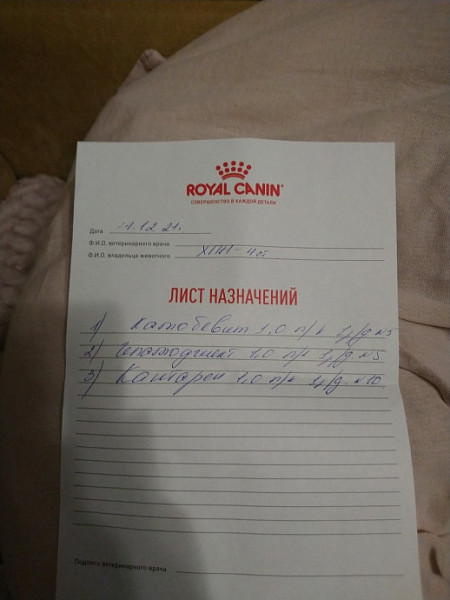 ROYAL CANIN
СОВЕРШЕНСТВО В КАЖДОЙ ДЕТАЛИ
Дата 21.12.21г.
Ф.И.О. ветеринарного врача
Ф.И.О. владельца животного ХПН-4ст
ЛИСТ НАЗНАЧЕНИЙ
1) Катобевит 1,0 п/к 1р/д №5
2) Гепатоджект 1,0 п/к 1р/д №5
3) Кантарен 1,0 п/к 1р/д №10
Подпись ветеринарного врача